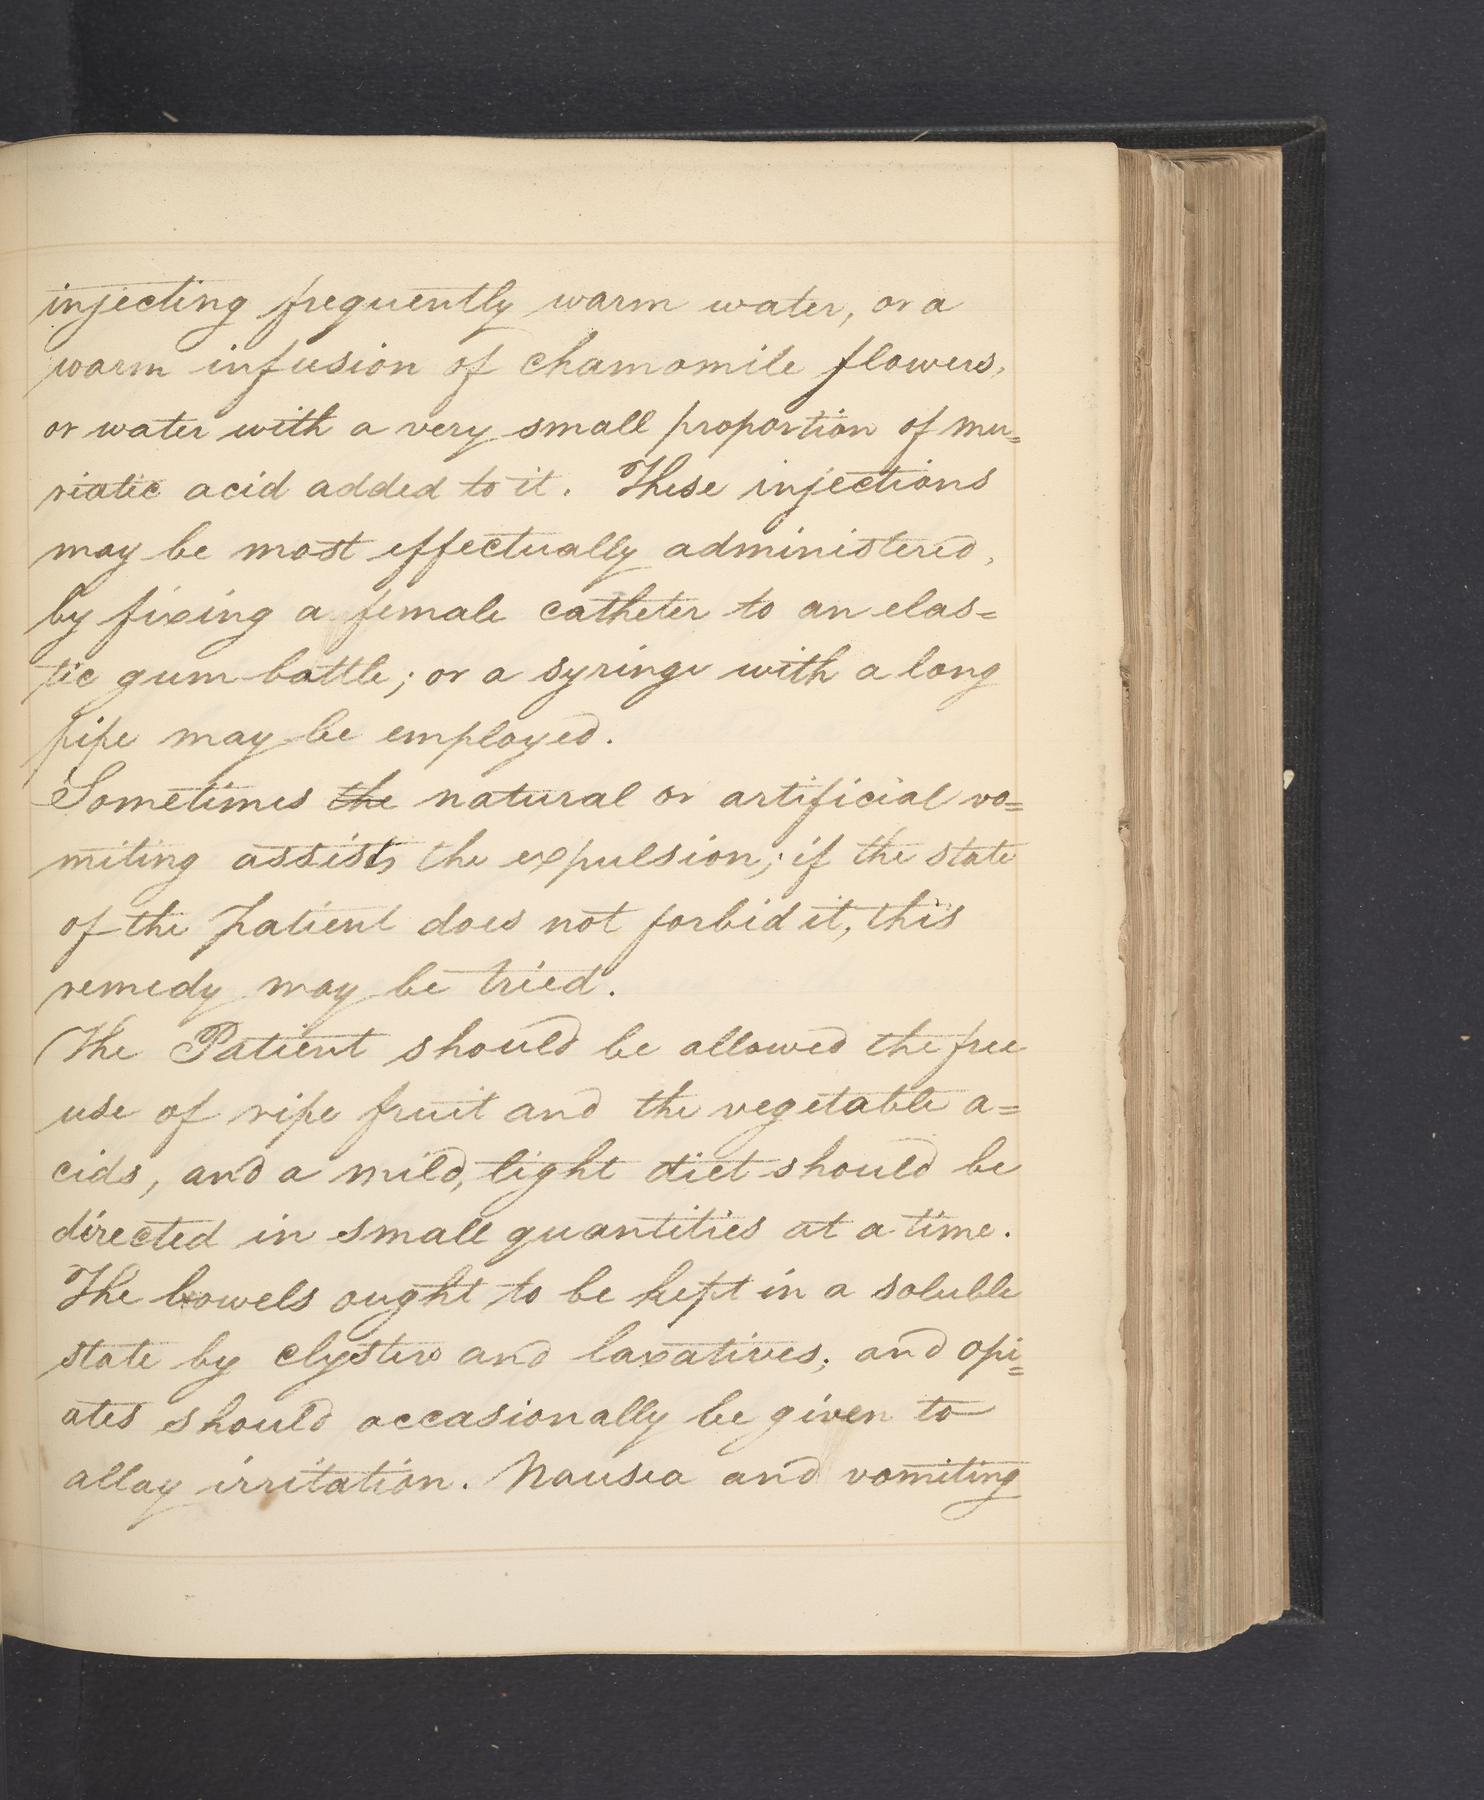 injecting frequently warm water, or a
warm infusion of chamomile flowers,
or water with a very small proportion of mu=
riatic acid added to it. These injections
may be most effectually administered,
by fixing a female catheter to an elas=
tic gum-bottle; or a syringe with a long
pipe may be employed.
Sometimes the natural or artificial vo=
miting assists the expulsion; if the state
of the patient does not forbid it, this
remedy may be tried.
The Patient should be allowed the free
use of ripe fruit and the vegetable a=
cids, and a mild, light diet should be
directed in small quantities at a time.
The bowels ought to be kept in a soluble
state by clysters and laxatives; and opi=
ates should occasionally be given to
allay irritation. Nausea and vomiting